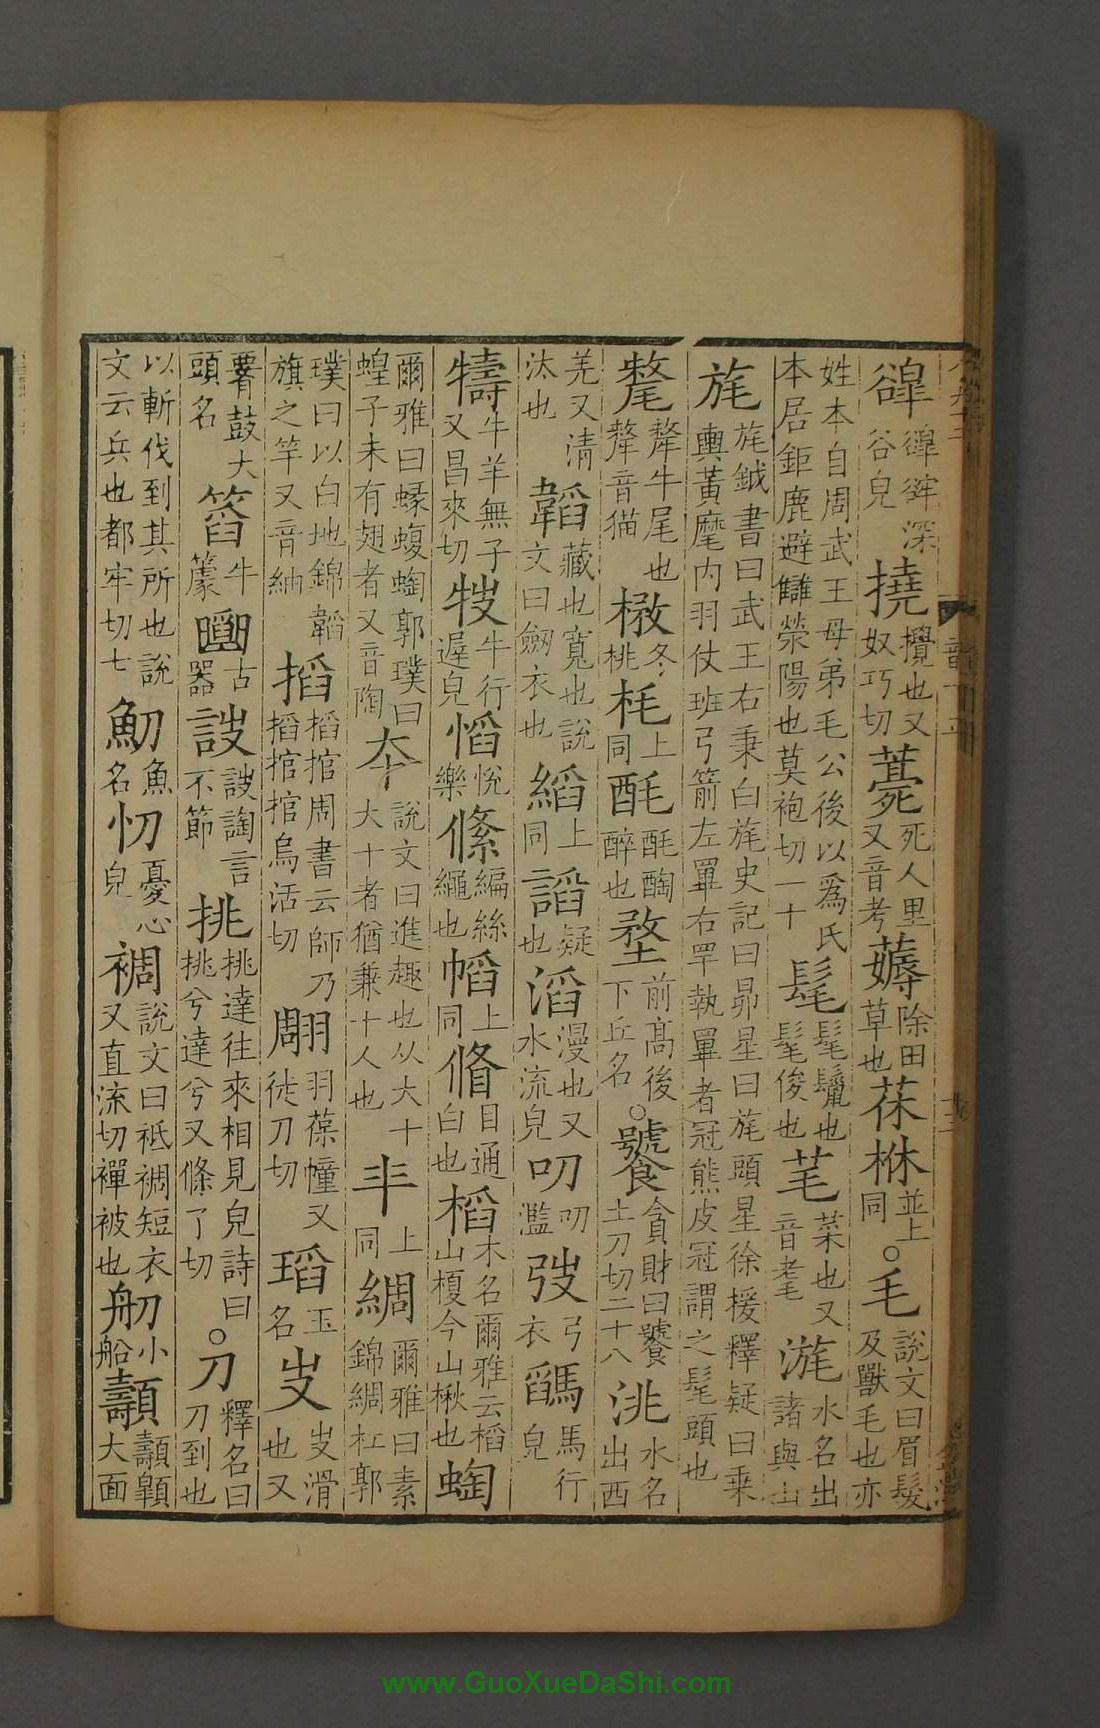 𧯆𧯆谾深谷皃撓攪也又奴巧切薧死人里又音考薅除田草也茠㧁並上同○毛說文曰眉髮及獸毛也亦
姓本自周武王母弟毛公後以爲氏本居鉅鹿避讎滎陽也莫袍切一十髦髦鬣也髦俊也芼菜也又音耄㴘水名出諸與山
旄旄鉞書曰武王右秉白旄史記曰昴星曰旄頭星徐援釋疑曰乗輿黃麾內羽仗班弓箭左罼右罕執罼者冠熊皮冠謂之髦頭也
氂犛牛尾也犛音猫楙冬桃枆上同酕酕醄醉也堥前高後下丘名○饕貪財曰饕土刀切二十八洮水名出西
羌又清汰也韜藏也寬也說文曰劒衣也縚上同謟疑也滔漫也又水流皃叨叨濫弢弓衣䮴馬行皃
㹗牛羊無子又昌來切㹑牛行遟皃慆悅樂絛編絲繩也幍上同㿒目通白也槄木名爾雅云槄山榎今山楸也蜪
爾雅曰蝝蝮蜪郭璞曰蝗子未有翅者又音陶夲說文曰進趣也从大十大十者猶兼十人也𠦍上同綢爾雅曰素錦綢杠郭
璞曰以白地錦韜旗之竿又音紬搯搯捾周書云師乃搯捾捾烏活切翢羽葆幢又徒刀切瑫玉名㞻㞻滑也又
鼛鼓大頭名䈱牛篆𠥓古器𧦪𧦪詾言不節挑挑達往來相見皃詩曰挑兮達兮又條了切○刀釋名曰刀到也
以斬伐到其所也說文云兵也都牢切七魛魚名忉憂心皃裯說文曰袛裯短衣又直流切襌被也舠小船𩕯𩕯顐大面
www.GuoXueDaShi.com